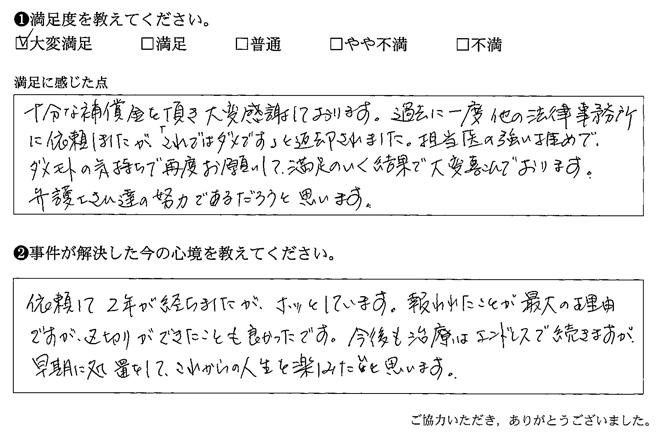 ❶満足度を教えてください。
☑大変満足 □満足 □普通 □やや不満 □不満
満足に感じた点
十分な補償金を頂き大変感謝しております。過去に一度他の法律事務所
に依頼しましたが「これではダメです」と返却されました。担当医の強い推めで、
ダメモトの気持ちで再度お願いして、満足のいく結果で大変喜んでおります。
弁護士さん達の努力であるだろうと思います。
❷事件が解決した今の心境を教えてください。
依頼して2年が経ちましたが、ホッとしています。報われたことが最大の理由
ですが、区切りができたことも良かったです。今後も治療はエンドレスで続きますが、
早期に処置をして、これからの人生を楽しみたいと思います。
ご協力いただき，ありがとうございました。